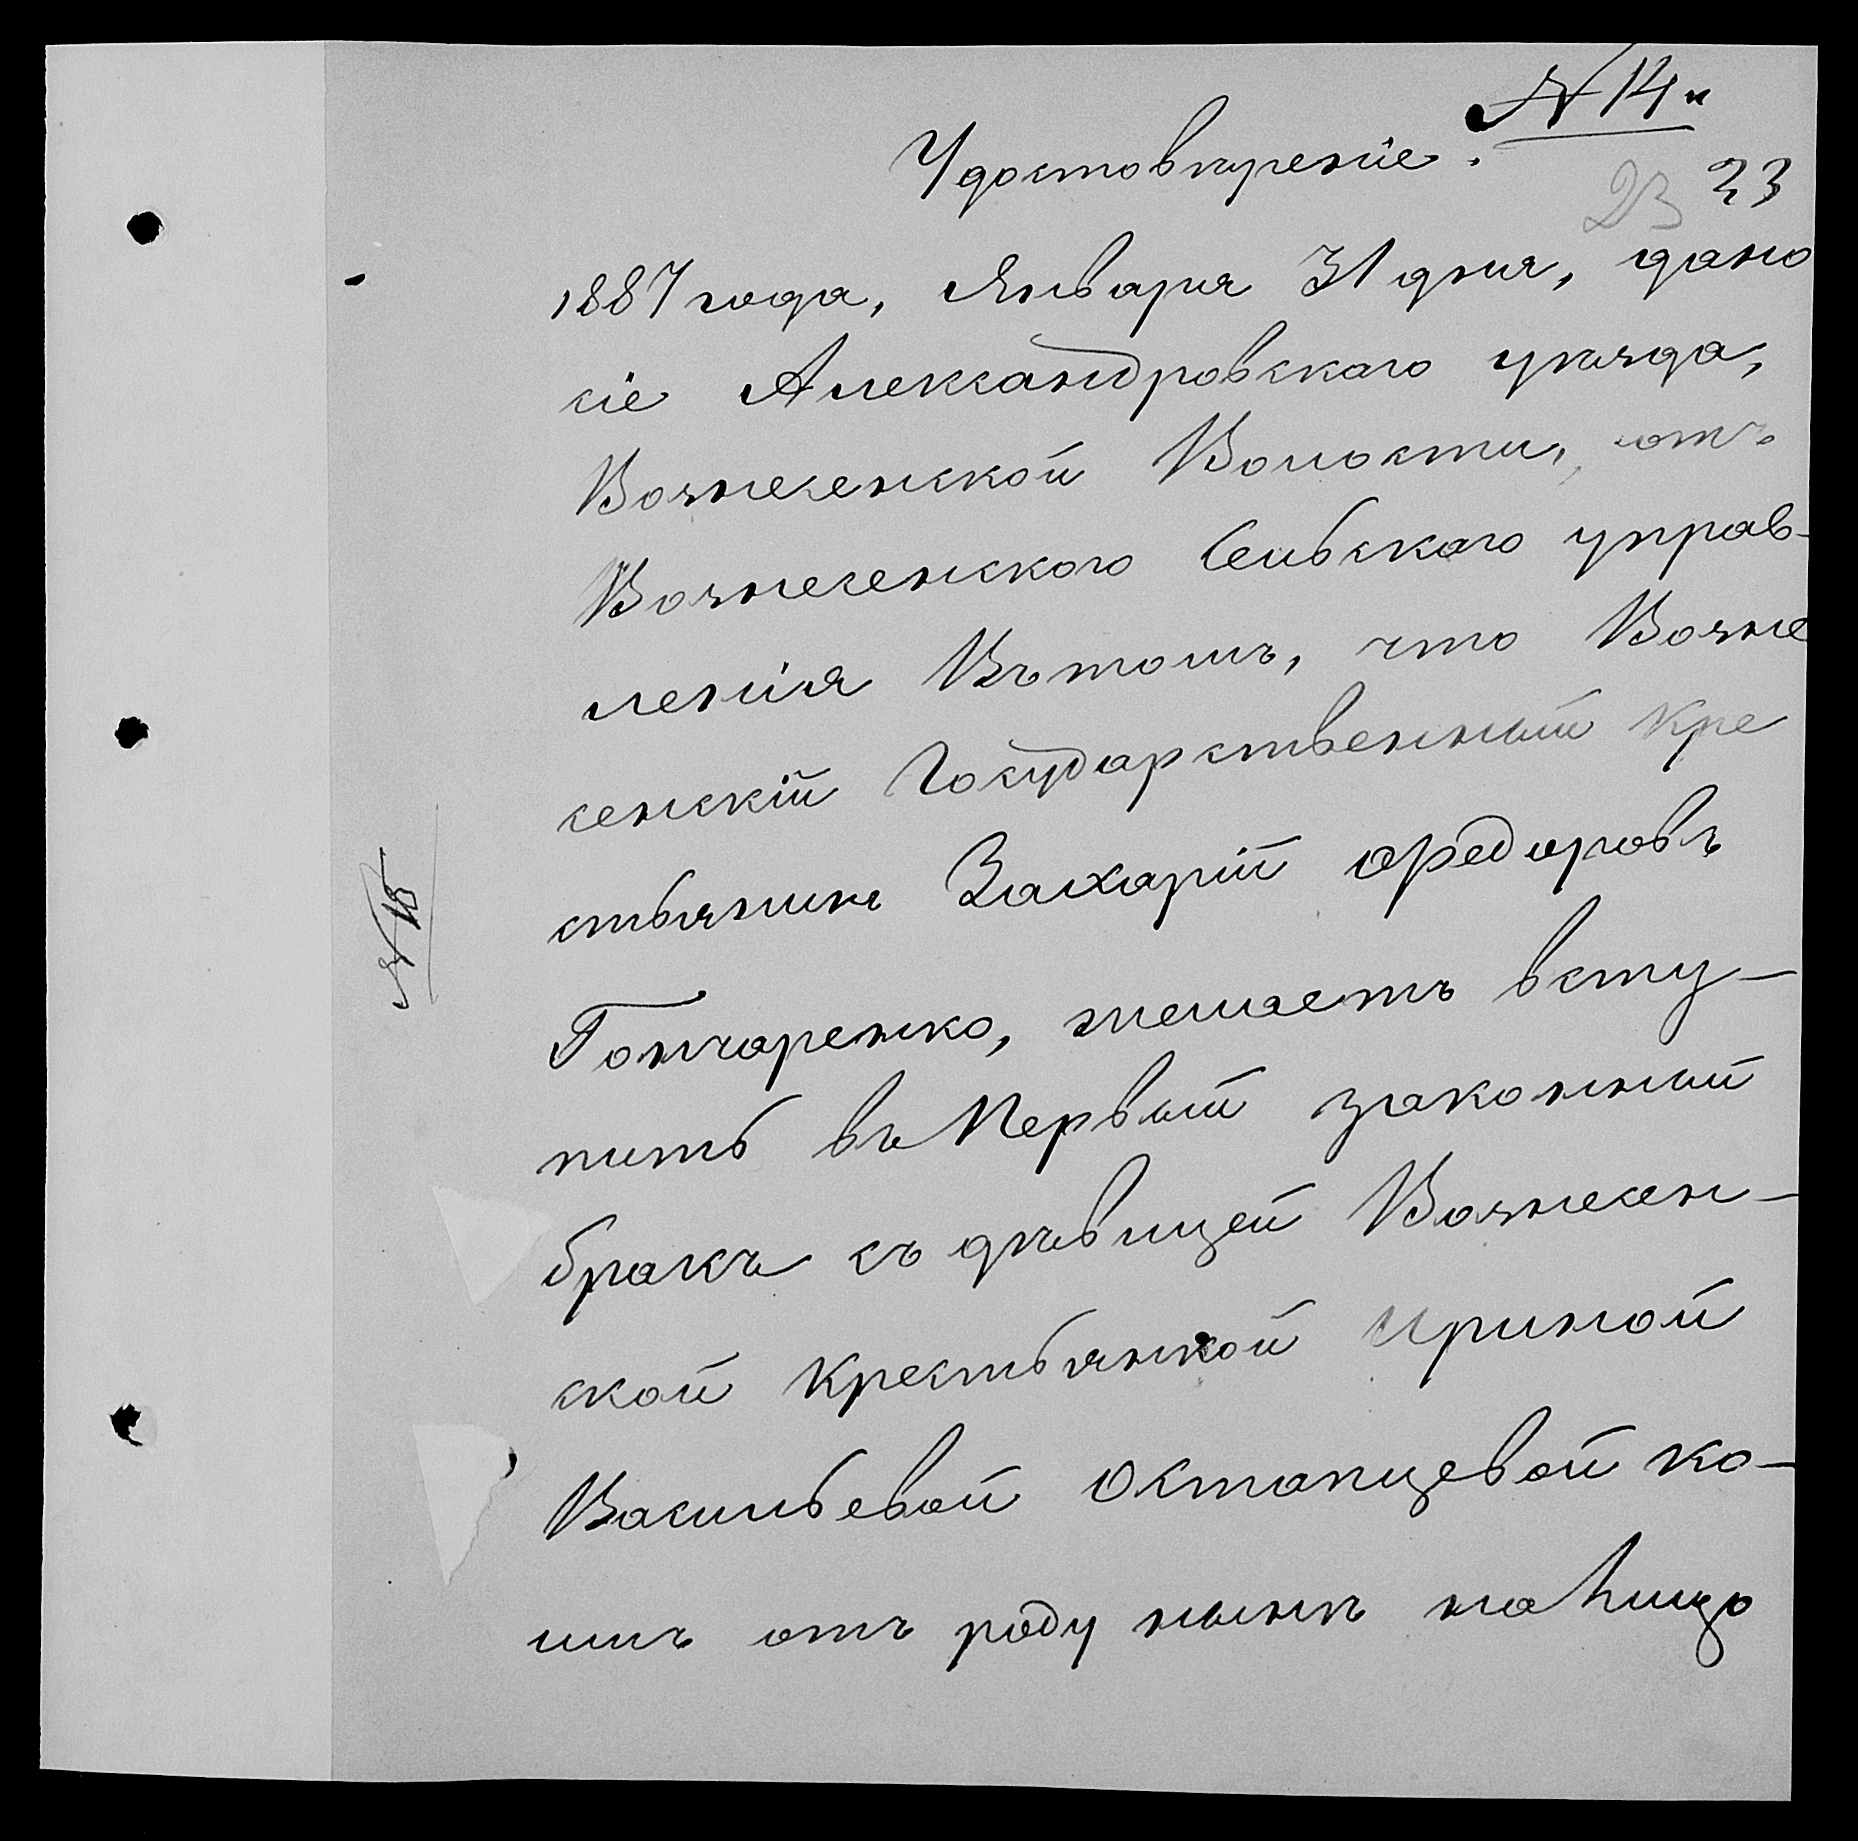 № 14й
Удостовѣреніе.
23 23
1887 года, Января 31 дня, дано
сіе Александровскаго уѣзда,
Вознесенской Волости, отъ
Вознесенского Сельскаго управ-
ленія Въ томъ, что Возне
сенскій Государственный Кре
стьянинъ Захарій Федоровъ
Гончаренко, желаетъ всту-
пить въ Первый законный
бракъ съ дѣвицей Вознесен-
ской Крестьянкой Ириной
Васильевой Остапцевой ко-
имъ отъ роду нынѣ
№ 15